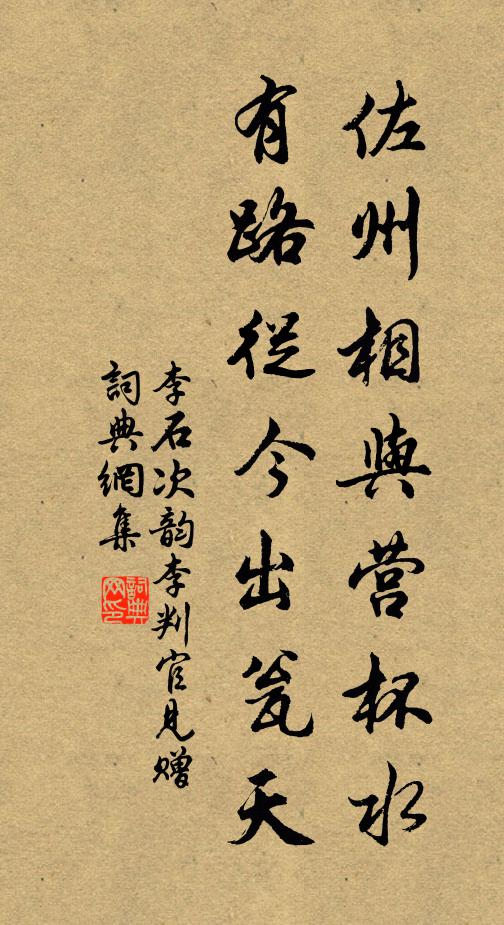 佐州相與营杯水
有路從今出瓮天
李石次韵李判官見贈
詞典網集
詞典网印